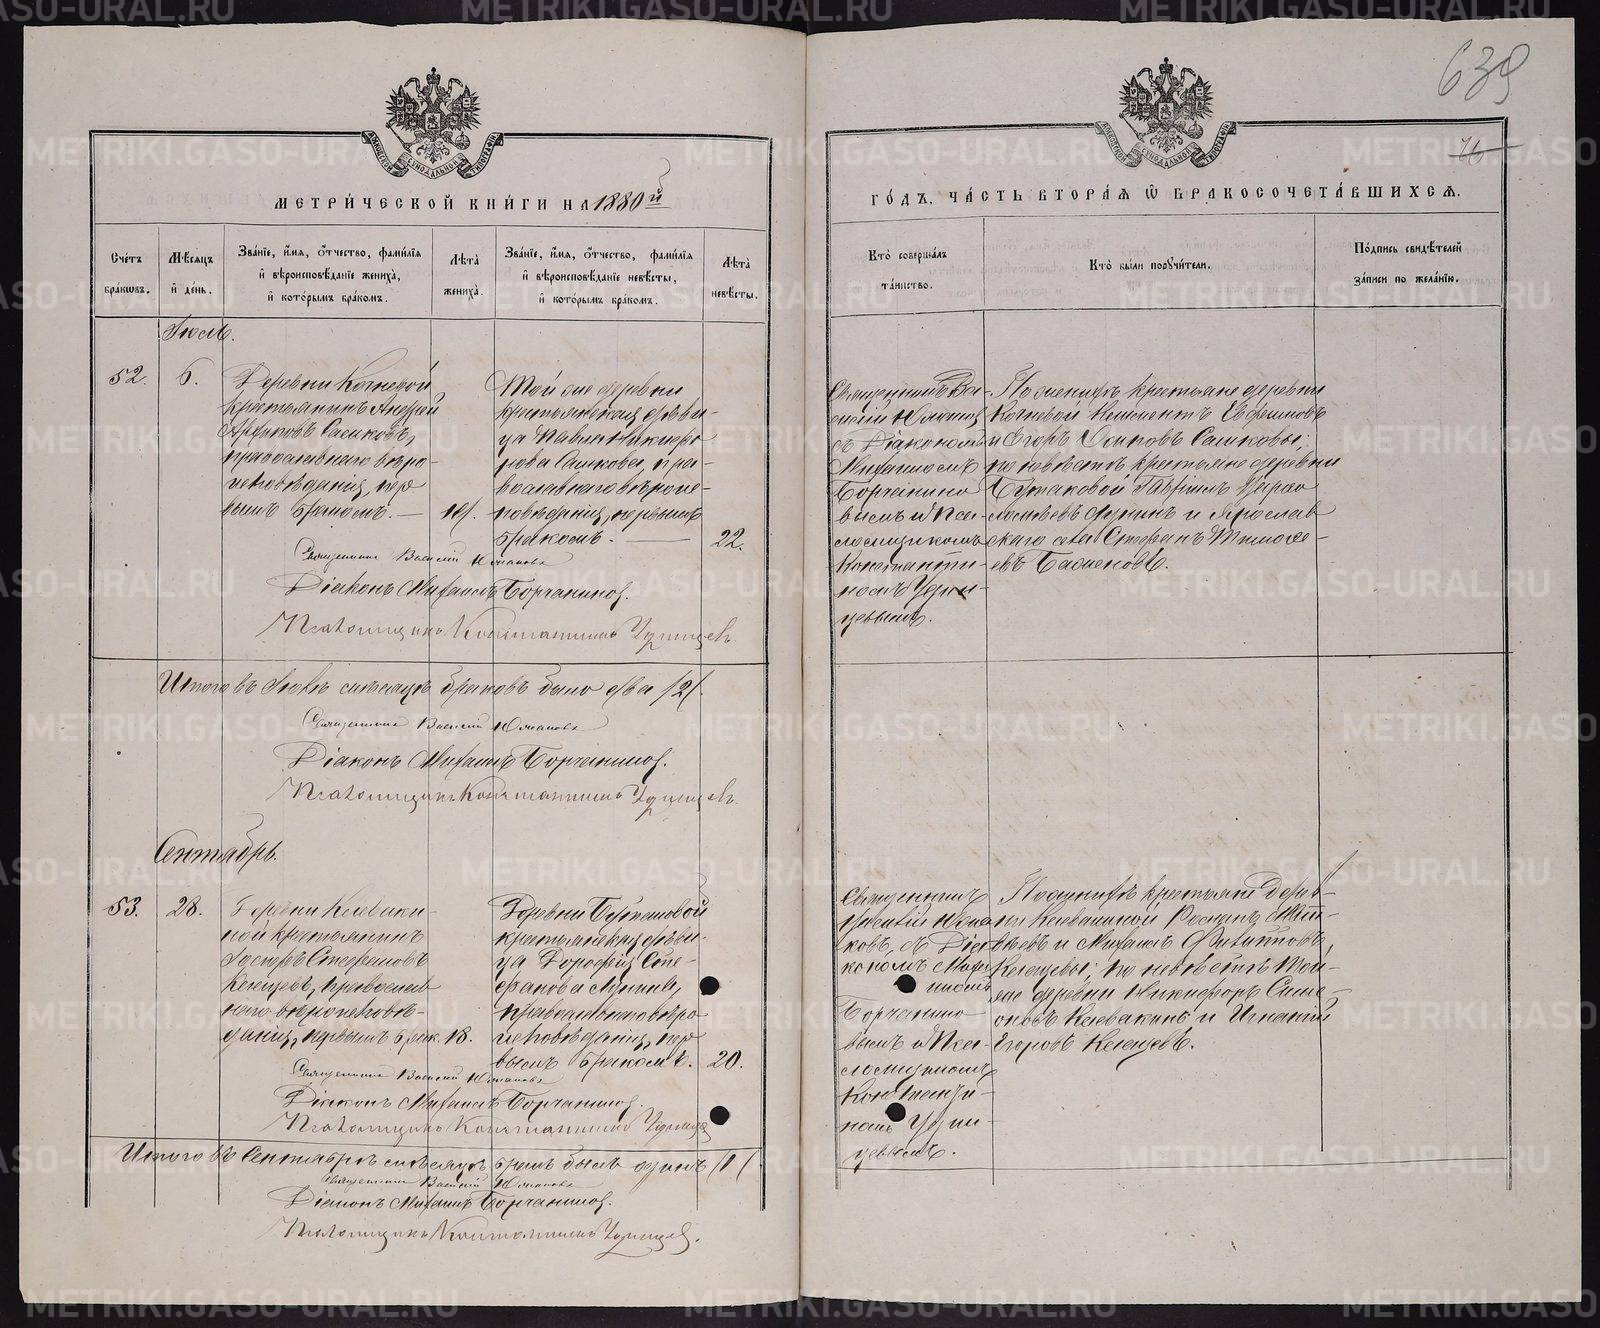 639
МЕТРИЧЕСКОЙ КНИГИ НА 1880й
ГОДЪ, ЧАСТЬ ВТОРАЯ Ѽ БРАКОСОЧЕТАВШИХСЯ.
Счетъ браковъ.
Мѣсяцъ и день.
Званіе, имя, отчество, фамилія
и вѣроисповѣданіе жениха,
и которымъ бракомъ.
Лѣта жениха.
Званіе, имя, отчество, фамилія
и вѣроисповѣданіе невѣсты,
и которымъ бракомъ.
Лѣта невѣсты.
Кто совершалъ
таинство.
Кто были поручители.
Подпись свидѣтелей
записи по желанію.
Іюль.
52.
6.
Деревни Кочневой
крестьянинъ Андрей
православнаго вѣро-
исповѣданія, пер
вымъ бракомъ. —
Той же деревни
крестьянская дѣви-
ца Никифо
рова Сашкова, пра-
вославнаго вѣроис-
повѣданія, первымъ
бракомъ. —
22.
Священникъ Ва-
силій
съ Діакономъ
Михаиломъ
Борчанино
вымъ и Пса-
ломщикомъ
Константи-
номъ
По женихѣ крестьяне деревни
Кочневой Климентъ Евфимовъ
и Егоръ Осиповъ Сашковы;
по невѣстѣ крестьяне деревни
и Ярослав
скаго села Стефанъ Тимофе-
евъ Баженовъ.
Священникъ Василій
Діаконъ Михаилъ Борчаниновъ.
Псаломщикъ Константинъ
Итого въ Іюлѣ мѣсяцѣ браковъ было два /2/.
Священникъ Василій
Діаконъ Михаилъ Борчаниновъ.
Псаломщикъ Константинъ
Сентябрь.
53.
28.
Деревни Клеваки-
ной крестьянинъ
Стефановъ
православ
наго вѣроисповѣ-
данія, первымъ брак.
18.
Деревни
крестьянская дѣви-
ца Дорофея Сте-
фанова
православнаго вѣро
исповѣданія, пер
вымъ бракомъ.
20.
Священникъ
съ Діа
кономъ Миха
иломъ
Борчанино
вымъ и Пса-
ломщикомъ
Константи-
номъ
По женихѣ крестьяне дерев-
ни Клевакиной Романъ
и Михаилъ Филипповъ
по невѣстѣ той-
же деревни Никифоръ Симе-
оновъ Клевакинъ и Игнатій
Егоровъ
Священникъ Василій
Діаконъ Михаилъ Борчаниновъ.
Псаломщикъ Константинъ
Итого въ Сентябрѣ мѣсяцѣ бракъ былъ одинъ /1/
Священникъ Василій
Діаконъ Михаилъ Борчаниновъ.
Псаломщикъ Константинъ
METRIKI.GASO-URAL.RU